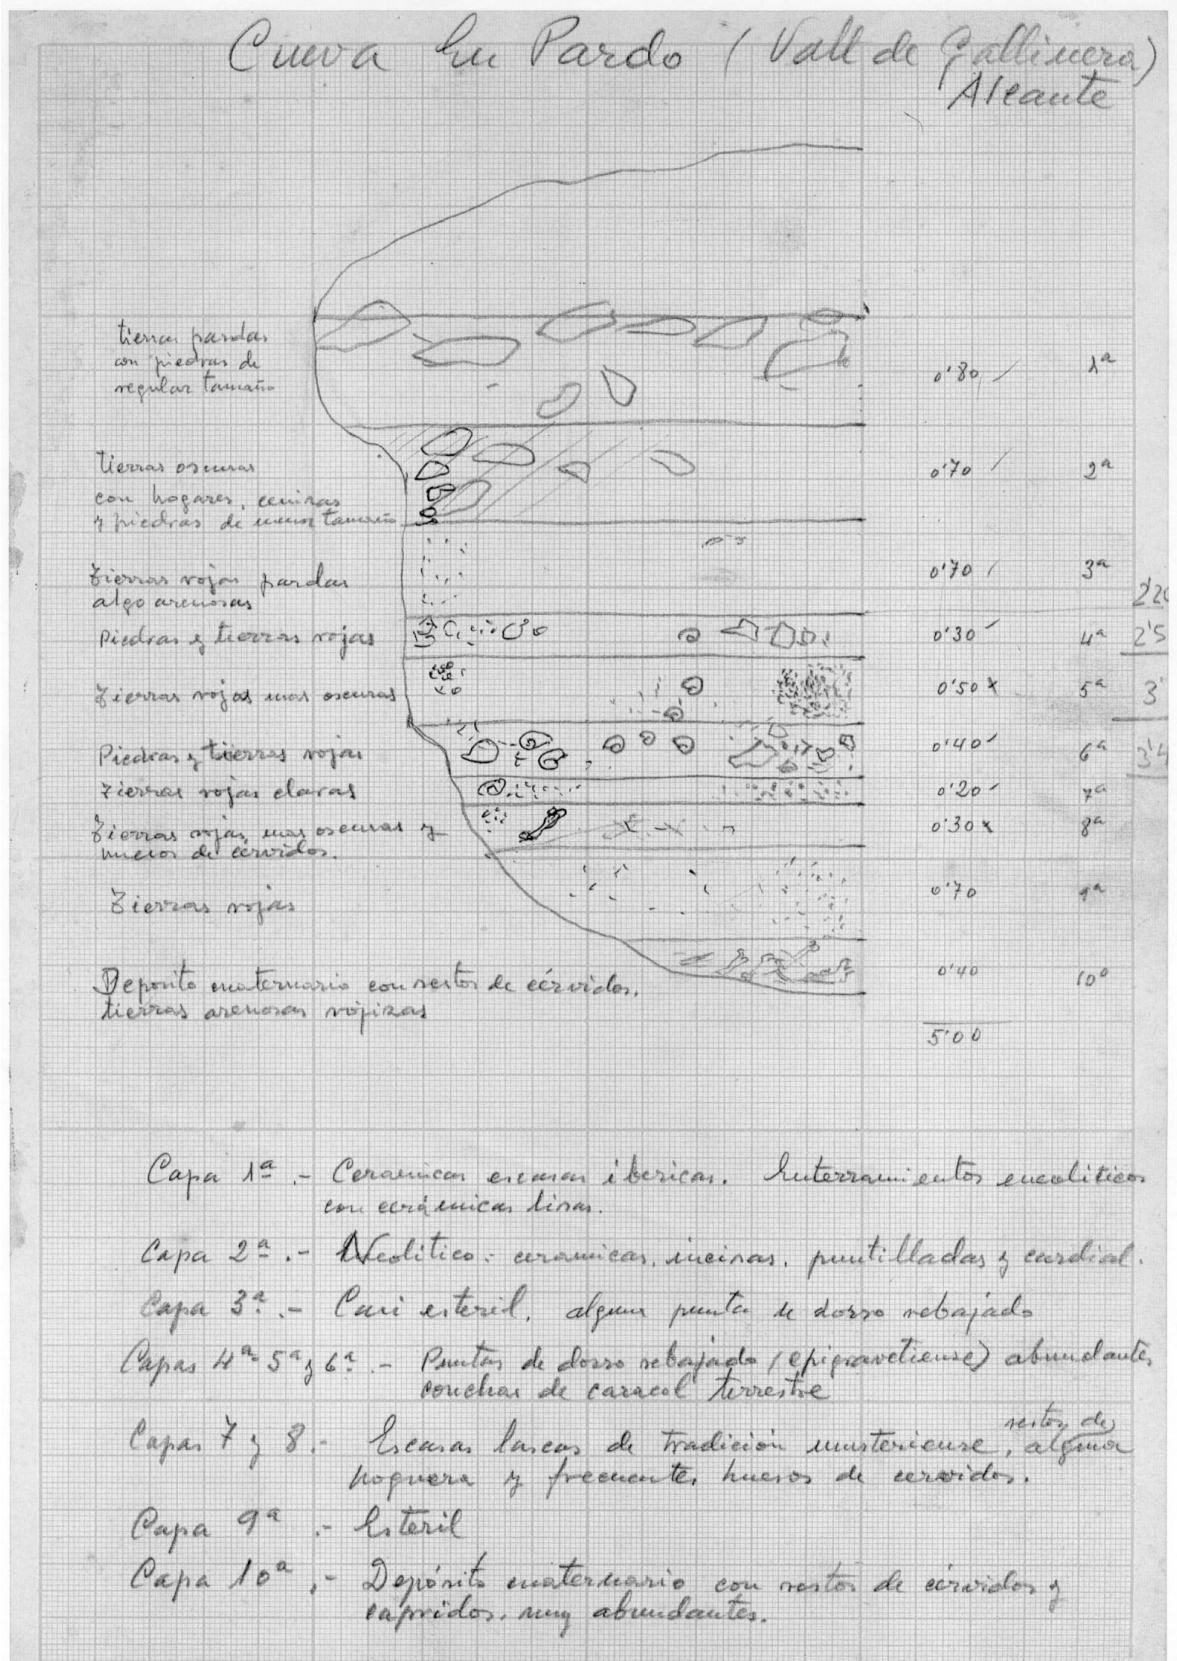 Cueva En Pardo (Vall de Gallinera)
Alicante
tierras pardas
con piedras de
regular tamaño
0'80
1ª
tierras oscuras
con hogares, cenizas
y piedras de menor tamaño
0'70
2ª
Tierras rojas pardas
algo arenosas
0'70
3ª
2'20
Piedras y tierras rojas
0'30
4ª
2'5
Tierras rojas mas oscuras
0'50 x
5ª
3'
Piedras y tierras rojas
0'40
6ª
3'4
Tierras rojas claras
0'20
7ª
Tierras rojas mas oscuras y
huesos de cérvidos.
0'30 x
8ª
Tierras rojas
0'70
9ª
Deposito cuaternario con restos de cérvidos,
tierras arenosas rojizas
0'40
10ª
5'00
Capa 1ª .- Ceramicas escasas ibericas. Enterramientos eneolíticos
con cerámicas lisas.
Capa 2ª .- Neolitico: ceramicas, incisas, puntilladas y cardial.
Capa 3ª .- Casi esteril, alguna punta de dorso rebajado
Capas 4ª 5ª y 6ª .- Puntas de dorso rebajado (epigravetiense) abundantes
conchas de caracol terrestre
Capas 7 y 8.- Escasas lascas de tradición musteriense, restos de alguna
hoguera y frecuentes huesos de cervidos.
Capa 9ª .- Esteril
Capa 10ª .- Depósito cuaternario con restos de cérvidos y
capridos, muy abundantes.